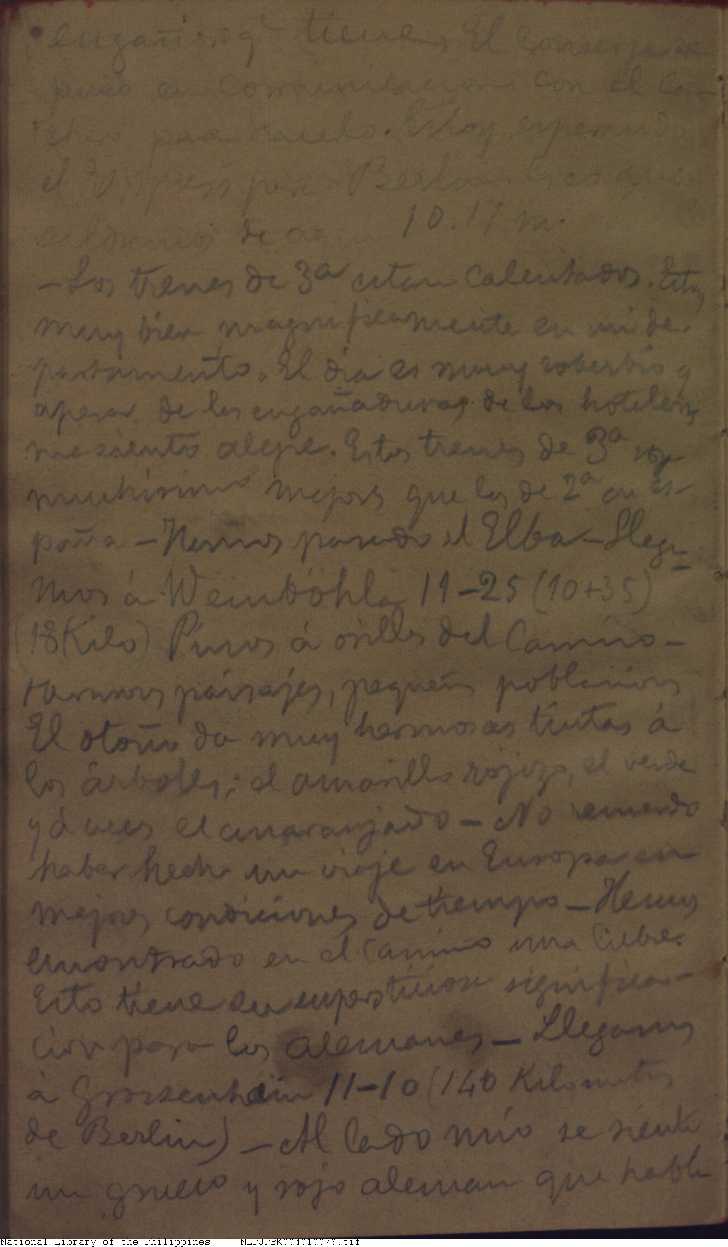 engañ que tienen. El conserje se
puso en comunicacion con el co-
chero para hacerlo. Estoy esperando
el Express para Berlin
de 10.17 m.
— Los trenes de 3ª estan calentados. Estoy
muy bien, magnificamente en mi de-
partamento. El dia es muy soberbio y
apesar de las engañaduras de los hoteleros
me siento alegre. Estos trenes de 3ª son
muchisimo mejores que los de 2ª en Es-
paña — Hemos pasado el Elba — Llega-
mos á Weinböhla 11-25 (10+35)
(18 Kilo) Pinos á orillas del Camino —
paisajes, pequeñas poblaciones
El otoño da muy hermosas tintas á
los árboles; el amarillo rojizo, el verde
y á veces el anaranjado — No recuerdo
haber hecho un viaje en Europa en
mejores condiciones de tiempo — Hemos
encontrado en el Camino una liebre.
Esto tiene su supersticiosa significa-
cion para los alemanes — Llegamos
á Grossenhain 11-10 (140 Kilometros
de Berlin) — Al lado mio se sienta
un grueso y rojo aleman que habla
National Library of the Philippines